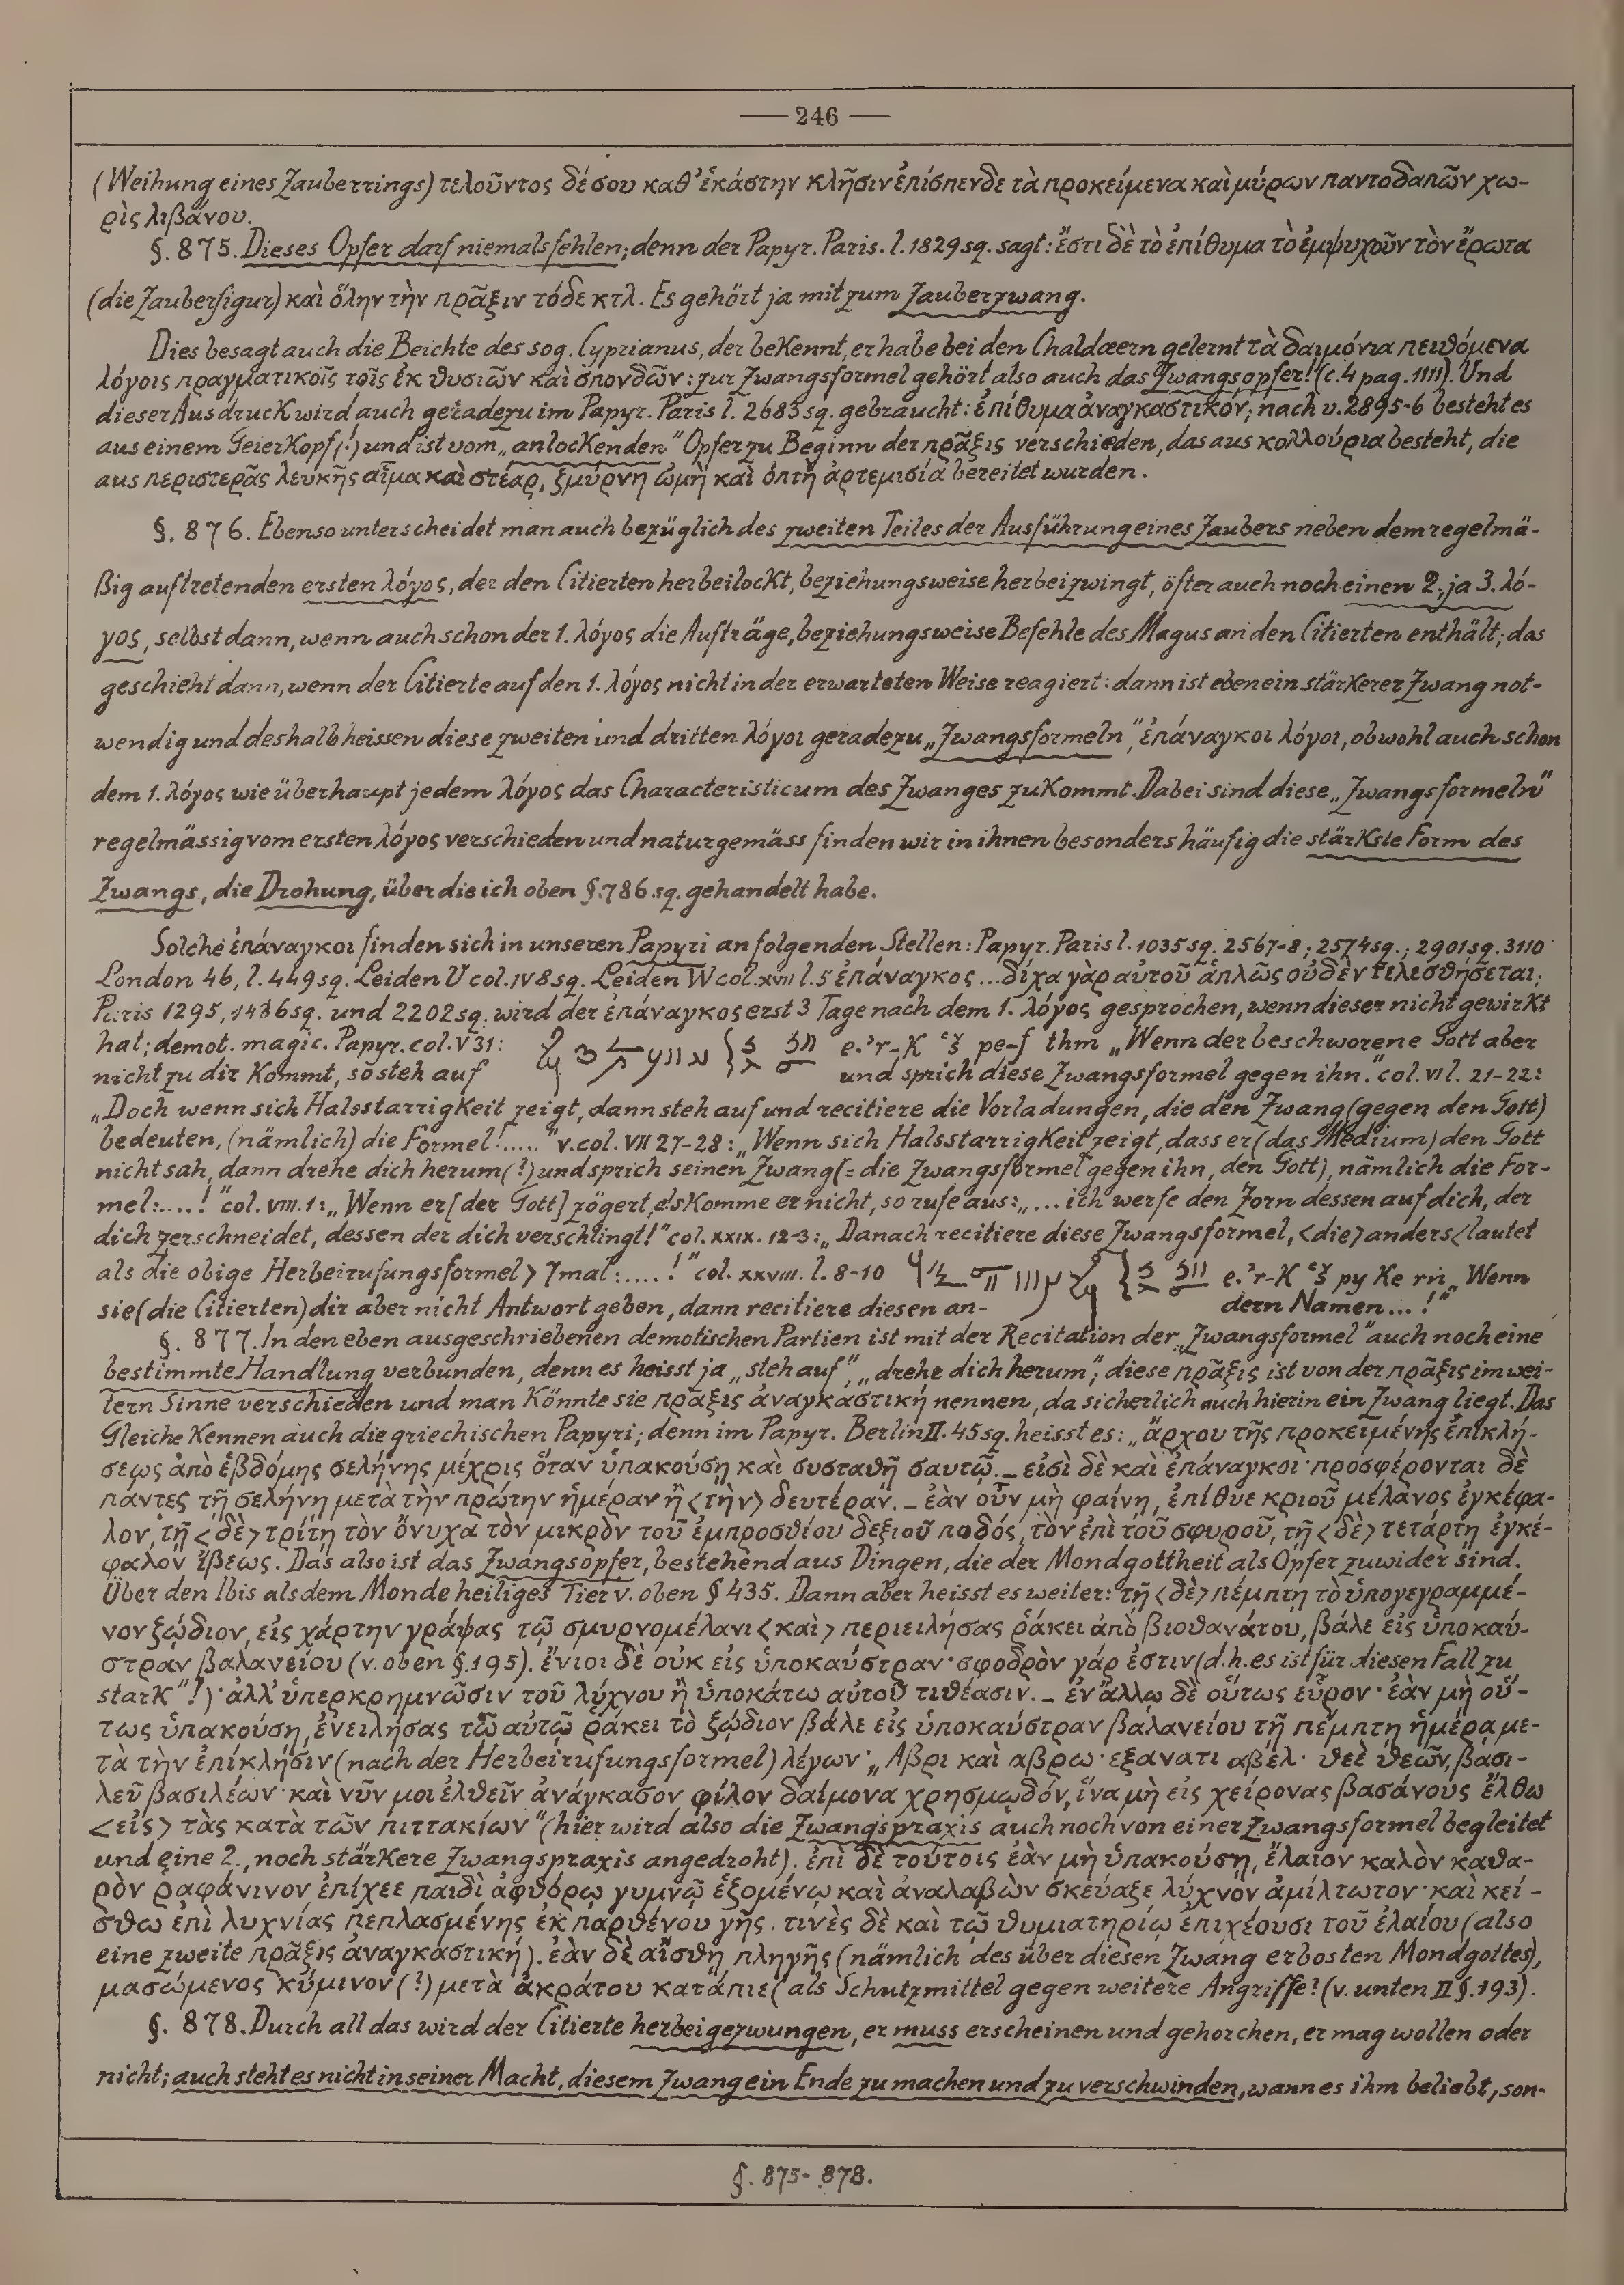 — 246 —
(Weihung eines Zauberrings) τελοῦντος δέ σου καθ' ἑκάστην κλῆσιν ἐπίσπενδε τὰ προκείμενα καὶ μύρων παντοδαπῶν χω-
ρὶς λιβάνου.
§. 875. Dieses Opfer darf niemals fehlen; denn der Papyr. Paris. l. 1829 sq. sagt: ἔστι δὲ τὸ ἐπίθυμα τὸ ἐμψυχοῦν τὸν ἔρωτα
(die Zauberfigur) καὶ ὅλην τὴν πρᾶξιν τόδε κτλ. Es gehört ja mit zum Zauberzwang.
Dies besagt auch die Beichte des sog. Cyprianus, der bekennt, er habe bei den Chaldæern gelernt τὰ δαιμόνια πειθόμενα
λόγοις πραγματικοῖς τοῖς ἐκ θυσιῶν καὶ σπονδῶν: zur Zwangsformel gehört also auch das Zwangsopfer! (c. 4 pag. 1111). Und
dieser Ausdruck wird auch geradezu im Papyr. Paris l. 2683 sq. gebraucht: ἐπίθυμα ἀναγκαστικόν; nach v. 2895-6 besteht es
aus einem Geierkopf (!) und ist vom „anlockenden" Opfer zu Beginn der πρᾶξις verschieden, das aus κολλούρια besteht, die
aus περιστερᾶς λευκῆς αἷμα καὶ στέαρ, ξμύρνη ὠμὴ καὶ ὀπτὴ ἀρτεμισία bereitet wurden.
§. 876. Ebenso unterscheidet man auch bezüglich des zweiten Teiles der Ausführung eines Zaubers neben dem regelmä-
ßig auftretenden ersten λόγος, der den Citierten herbeilockt, beziehungsweise herbeizwingt, öfter auch noch einen 2., ja 3. λό-
γος, selbst dann, wenn auch schon der 1. λόγος die Aufträge, beziehungsweise Befehle des Magus an den Citierten enthält; das
geschieht dann, wenn der Citierte auf den 1. λόγος nicht in der erwarteten Weise reagiert: dann ist eben ein stärkerer Zwang not-
wendig und deshalb heissen diese zweiten und dritten λόγοι geradezu „Zwangsformeln", ἐπάναγκοι λόγοι, obwohl auch schon
dem 1. λόγος wie überhaupt jedem λόγος das Characteristicum des Zwanges zukommt. Dabei sind diese „Zwangsformeln"
regelmässig vom ersten λόγος verschieden und naturgemäss finden wir in ihnen besonders häufig die stärkste Form des
Zwangs, die Drohung, über die ich oben §. 786 sq. gehandelt habe.
Solche ἐπάναγκοι finden sich in unseren Papyri an folgenden Stellen: Papyr. Paris l. 1035 sq. 2567-8; 2574 sq.; 2901 sq. 3110
London 46, l. 449 sq. Leiden V col. IV 8 sq. Leiden W col. XVIII l. 5 ἐπάναγκος ... δίχα γὰρ αὐτοῦ ἁπλῶς οὐδὲν τελεσθήσεται;
Paris 1295, 1436 sq. und 2202 sq. wird der ἐπάναγκος erst 3 Tage nach dem 1. λόγος gesprochen, wenn dieser nicht gewirkt
hat; demot. magic. Papyr. col. V 31: e.'r-K ꜥš pe-f thm „Wenn der beschworene Gott aber
nicht zu dir kommt, so steh auf und sprich diese Zwangsformel gegen ihn." col. VI l. 21-22:
„Doch wenn sich Halsstarrigkeit zeigt, dann steh auf und recitiere die Vorladungen, die den Zwang (gegen den Gott)
bedeuten, (nämlich) die Formel!....." v. col. VII 27-28: „Wenn sich Halsstarrigkeit zeigt, dass er (das Medium) den Gott
nicht sah, dann drehe dich herum (?) und sprich seinen Zwang (= die Zwangsformel gegen ihn, den Gott), nämlich die For-
mel:....!" col. VIII. 1: „Wenn er [der Gott] zögert, als komme er nicht, so rufe aus: „... ich werfe den Zorn dessen auf dich, der
dich zerschneidet, dessen der dich verschlingt!" col. XXIX. 12-3: „Danach recitiere diese Zwangsformel, <die> anders <lautet
als die obige Herbeirufungsformel> 7mal:....!" col. XXVIII. l. 8-10 e.'r-K ꜥš py Ke rn „Wenn
sie (die Citierten) dir aber nicht Antwort geben, dann recitiere diesen an- dern Namen...!"
§. 877. In den eben ausgeschriebenen demotischen Partien ist mit der Recitation der „Zwangsformel" auch noch eine
bestimmte Handlung verbunden, denn es heisst ja „steh auf", „drehe dich herum"; diese πρᾶξις ist von der πρᾶξις im wei-
tern Sinne verschieden und man könnte sie πρᾶξις ἀναγκαστική nennen, da sicherlich auch hierin ein Zwang liegt. Das
Gleiche kennen auch die griechischen Papyri; denn im Papyr. Berlin II. 45 sq. heisst es: „ἄρχου τῆς προκειμένης ἐπικλή-
σεως ἀπὸ ἑβδόμης σελήνης μέχρις ὅταν ὑπακούσῃ καὶ συσταθῇ σαυτῷ. _ εἰσὶ δὲ καὶ ἐπάναγκοι· προσφέρονται δὲ
πάντες τῇ σελήνῃ μετὰ τὴν πρώτην ἡμέραν ἢ <τὴν> δευτέραν. _ ἐὰν οὖν μὴ φαίνῃ, ἐπίθυε κριοῦ μέλανος ἐγκέφα-
λον, τῇ <δὲ> τρίτῃ τὸν ὄνυχα τὸν μικρὸν τοῦ ἐμπροσθίου δεξιοῦ ποδός, τὸν ἐπὶ τοῦ σφυροῦ, τῇ <δὲ> τετάρτῃ ἐγκέ-
φαλον ἴβεως. Das also ist das Zwangsopfer, bestehend aus Dingen, die der Mondgottheit als Opfer zuwider sind.
Über den Ibis als dem Monde heiliges Tier v. oben § 435. Dann aber heisst es weiter: τῇ <δὲ> πέμπτῃ τὸ ὑπογεγραμμέ-
νον ζῴδιον, εἰς χάρτην γράψας τῷ σμυρνομέλανι <καὶ> περιειλήσας ῥάκει ἀπὸ βιοθανάτου, βάλε εἰς ὑποκαύ-
στραν βαλανείου (v. oben §. 195). ἔνιοι δὲ οὐκ εἰς ὑποκαύστραν· σφοδρὸν γάρ ἐστιν (d. h. es ist für diesen Fall zu
stark"!)· ἀλλ' ὑπερκρημνῶσιν τοῦ λύχνου ἢ ὑποκάτω αὐτοῦ τιθέασιν. _ ἐν ἄλλῳ δὲ οὕτως εὗρον· ἐὰν μὴ οὕ-
τως ὑπακούσῃ, ἐνειλήσας τῷ αὐτῷ ῥάκει τὸ ζῴδιον βάλε εἰς ὑποκαύστραν βαλανείου τῇ πέμπτῃ ἡμέρᾳ με-
τὰ τὴν ἐπίκλησιν (nach der Herbeirufungsformel) λέγων· „Αβρι καὶ αβρω· εξανατι αβέλ· θεὲ θεῶν, βασι-
λεῦ βασιλέων· καὶ νῦν μοι ἐλθεῖν ἀνάγκασον φίλον δαίμονα χρησμῳδόν, ἵνα μὴ εἰς χείρονας βασάνους ἔλθω
<εἰς> τὰς κατὰ τῶν πιττακίων" (hier wird also die Zwangspraxis auch noch von einer Zwangsformel begleitet
und eine 2., noch stärkere Zwangspraxis angedroht). ἐπὶ δὲ τούτοις ἐὰν μὴ ὑπακούσῃ, ἔλαιον καλὸν καθα-
ρὸν ῥαφάνινον ἐπίχεε παιδὶ ἀφθόρῳ γυμνῷ ἑζομένῳ καὶ ἀναλαβὼν σκεύαζε λύχνον ἀμίλτωτον· καὶ κεί-
σθω ἐπὶ λυχνίας πεπλασμένης ἐκ παρθένου γῆς. τινὲς δὲ καὶ τῷ θυμιατηρίῳ ἐπιχέουσι τοῦ ἐλαίου (also
eine zweite πρᾶξις ἀναγκαστική). ἐὰν δὲ αἴσθῃ πληγῆς (nämlich des über diesen Zwang erbosten Mondgottes),
μασώμενος κύμινον (?) μετὰ ἀκράτου κατάπιε (als Schutzmittel gegen weitere Angriffe? (v. unten II §. 193).
§. 878. Durch all das wird der Citierte herbeigezwungen, er muss erscheinen und gehorchen, er mag wollen oder
nicht; auch steht es nicht in seiner Macht, diesem Zwang ein Ende zu machen und zu verschwinden, wann es ihm beliebt, son-
§. 875-878.